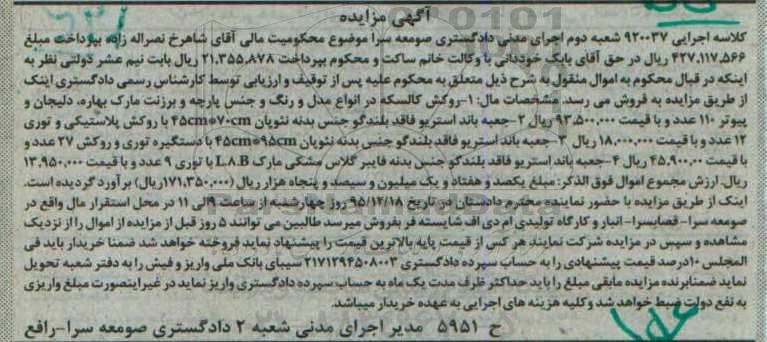 آگهی مزایده
کلاسه اجرایی ۹۲۰۰۳۷ شعبه دوم اجرای مدنی دادگستری صومعه سرا موضوع محکومیت مالی آقای شاهرخ نصراله زاده بپرداخت مبلغ
۴۲۷,۱۱۷,۵۶۶ ریال در حق آقای بابک خوددانی با وکالت خانم ساکت و محکوم بپرداخت ۲۱,۳۵۵,۸۷۸ ریال بابت نیم عشر دولتی نظر به
اینکه در قبال محکوم به اموال منقول به شرح ذیل متعلق به محکوم علیه پس از توقیف و ارزیابی توسط کارشناس رسمی دادگستری اینک
از طریق مزایده به فروش می رسد. مشخصات مال: ۱-روکش کالسکه در انواع مدل و رنگ و جنس پارچه و برزنت مارک بهاره، دلیجان و
پیوتر ۱۱۰ عدد و با قیمت ۹۳,۵۰۰,۰۰۰ ریال ۲-جعبه باند استریو فاقد بلندگو جنس بدنه نئوپان ۴۵cm*۷۰cm با روکش پلاستیکی و توری
۱۲ عدد و با قیمت ۱۸,۰۰۰,۰۰۰ ریال ۳-جعبه باند استریو فاقد بلندگو جنس بدنه نئوپان ۴۵cm*۹۵cm با دستگیره توری و روکش ۲۷ عدد و
با قیمت ۴۵,۹۰۰,۰۰ ریال ۴-جعبه باند استریو فاقد بلندگو جنس بدنه فایبر گلاس مشکی مارک L.A.B با توری ۹ عدد و با قیمت ۱۳,۹۵۰,۰۰۰
ریال. ارزش مجموع اموال فوق الذکر: مبلغ یکصد و هفتاد و یک میلیون و سیصد و پنجاه هزار ریال (۱۷۱,۳۵۰,۰۰۰ریال) برآورد گردیده است.
اینک از طریق مزایده با حضور نماینده محترم دادستان در تاریخ ۹۵/۱۲/۱۸ روز چهارشنبه از ساعت ۹الی ۱۱ در محل استقرار مال واقع در
صومعه سرا- قصابسرا- انبار و کارگاه تولیدی ام دی اف شایسته فر بفروش میرسد طالبین می توانند ۵ روز قبل از مزایده از اموال را از نزدیک
مشاهده و سپس در مزایده شرکت نمایند هر کس از قیمت پایه بالاترین قیمت را پیشنهاد نماید فروخته خواهد شد ضمنا خریدار باید فی
المجلس ۱۰درصد قیمت پیشنهادی را به حساب سپرده دادگستری ۲۱۷۱۲۹۴۵۰۸۰۰۳ سیبای بانک ملی واریز و فیش را به دفتر شعبه تحویل
نماید ضمنابرنده مزایده مابقی مبلغ را باید حداکثر ظرف مدت یک ماه به حساب سپرده دادگستری واریز نماید در غیراینصورت مبلغ واریزی
به نفع دولت ضبط خواهد شد وکلیه هزینه های اجرایی به عهده خریدار میباشد.
ح ۵۹۵۱ مدیر اجرای مدنی شعبه ۲ دادگستری صومعه سرا-رافع